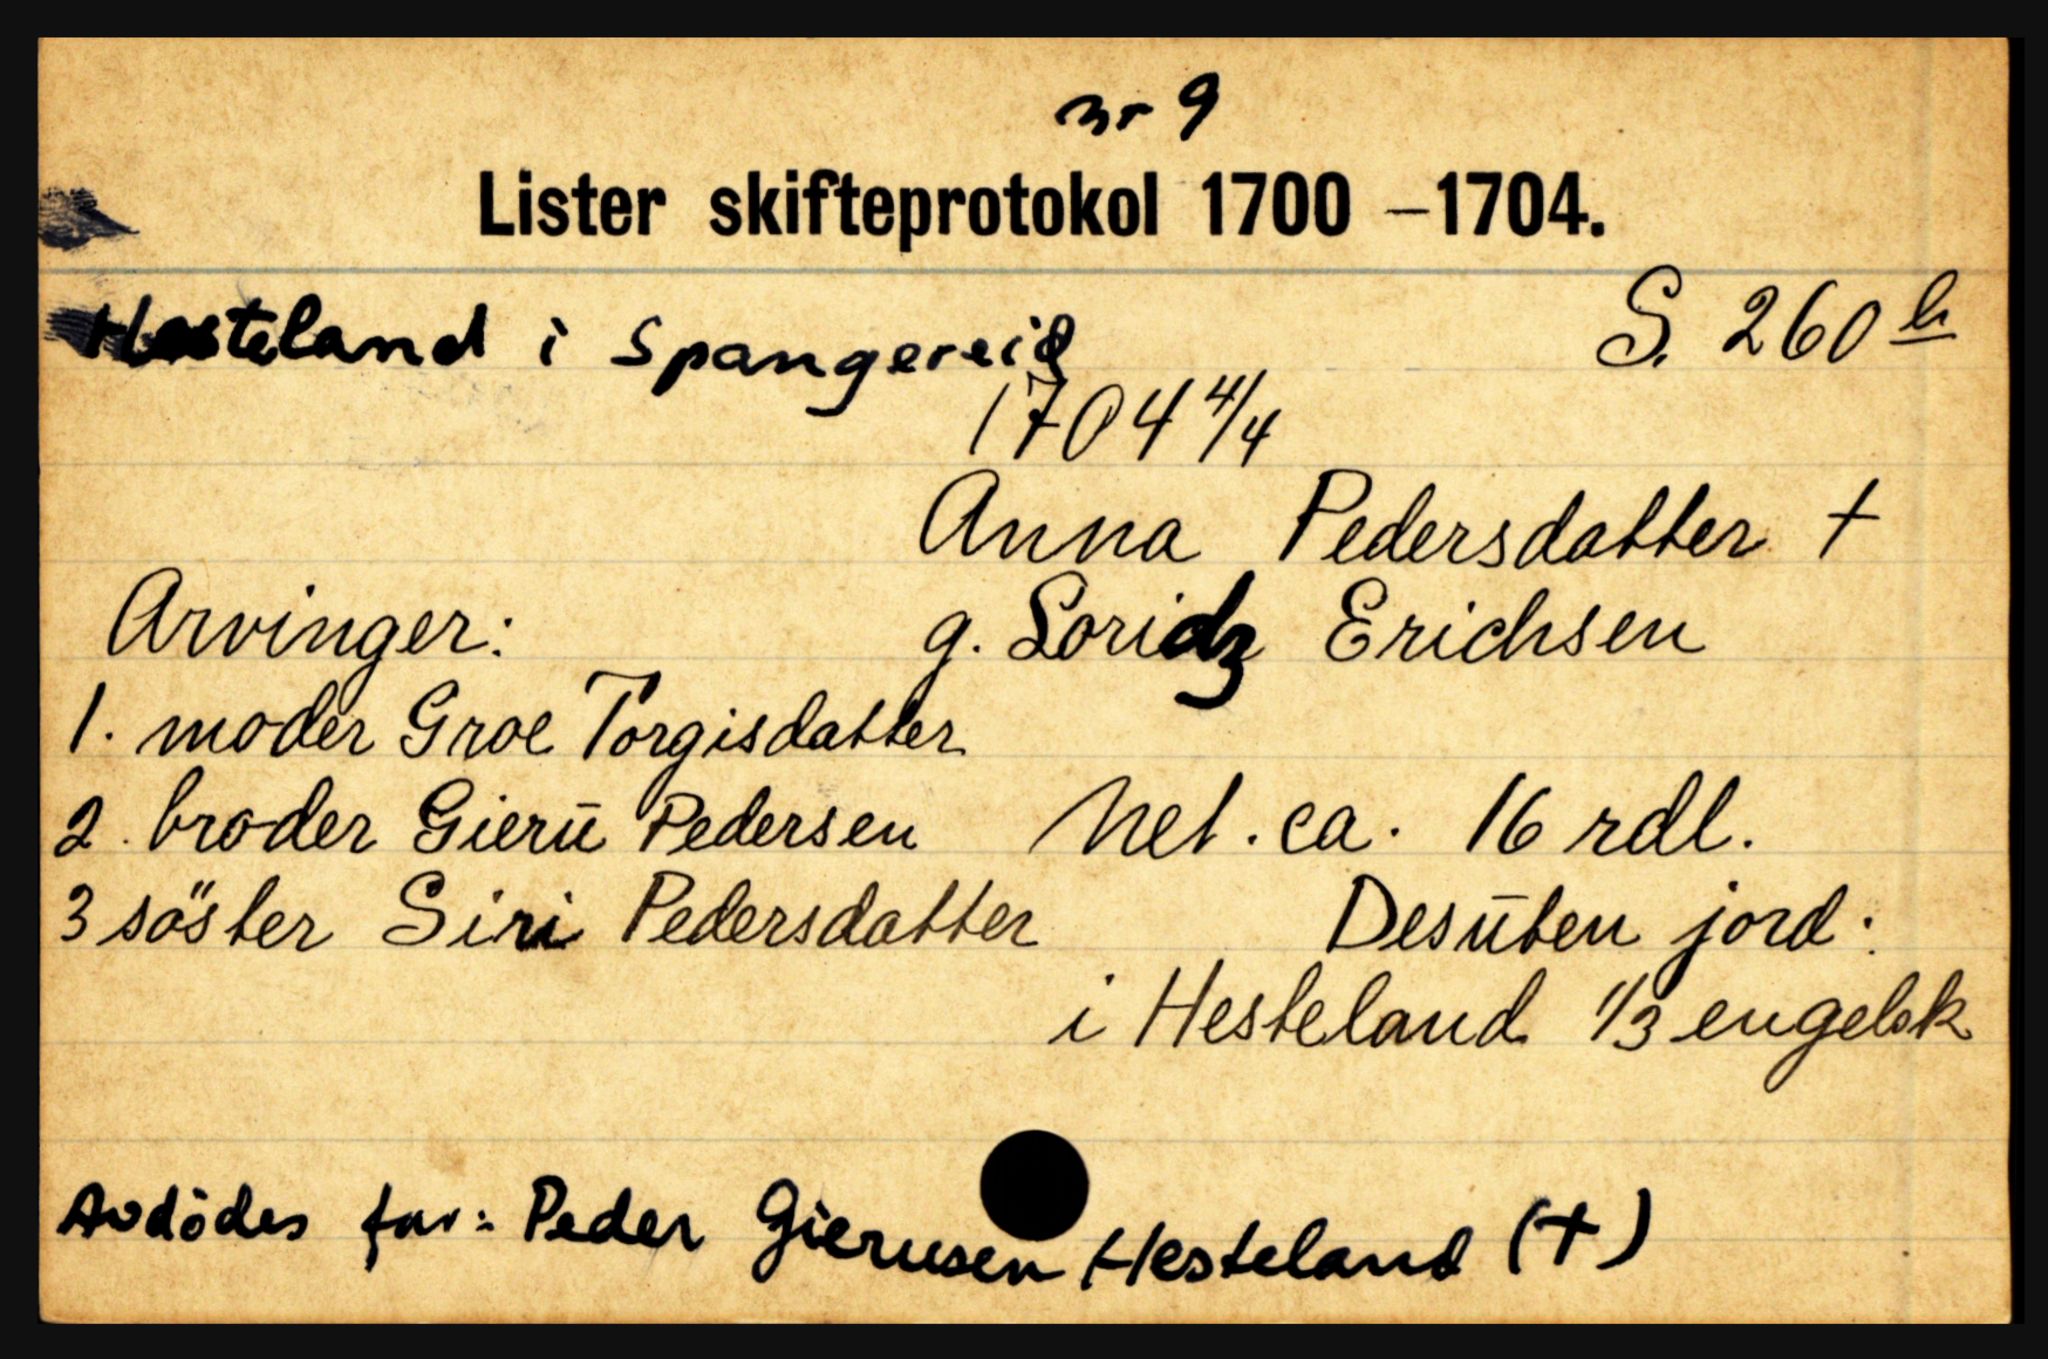 nr 9
Lister skifteprotokol 1700 – 1704.
Hesteland i Spangereid S. 260 b
1704 4/4
Anna Pedersdatter +
Arvinger: g. Loridz Erichsen
1. moder Groe Torgisdatter
2. broder Gierū Pedersen Net. ca. 16 rdl.
3 söster Siri Pedersdatter Desūten jord:
i Hesteland 1/3 engelsk
Avdödes far: Peder Gierusen Hesteland (+)